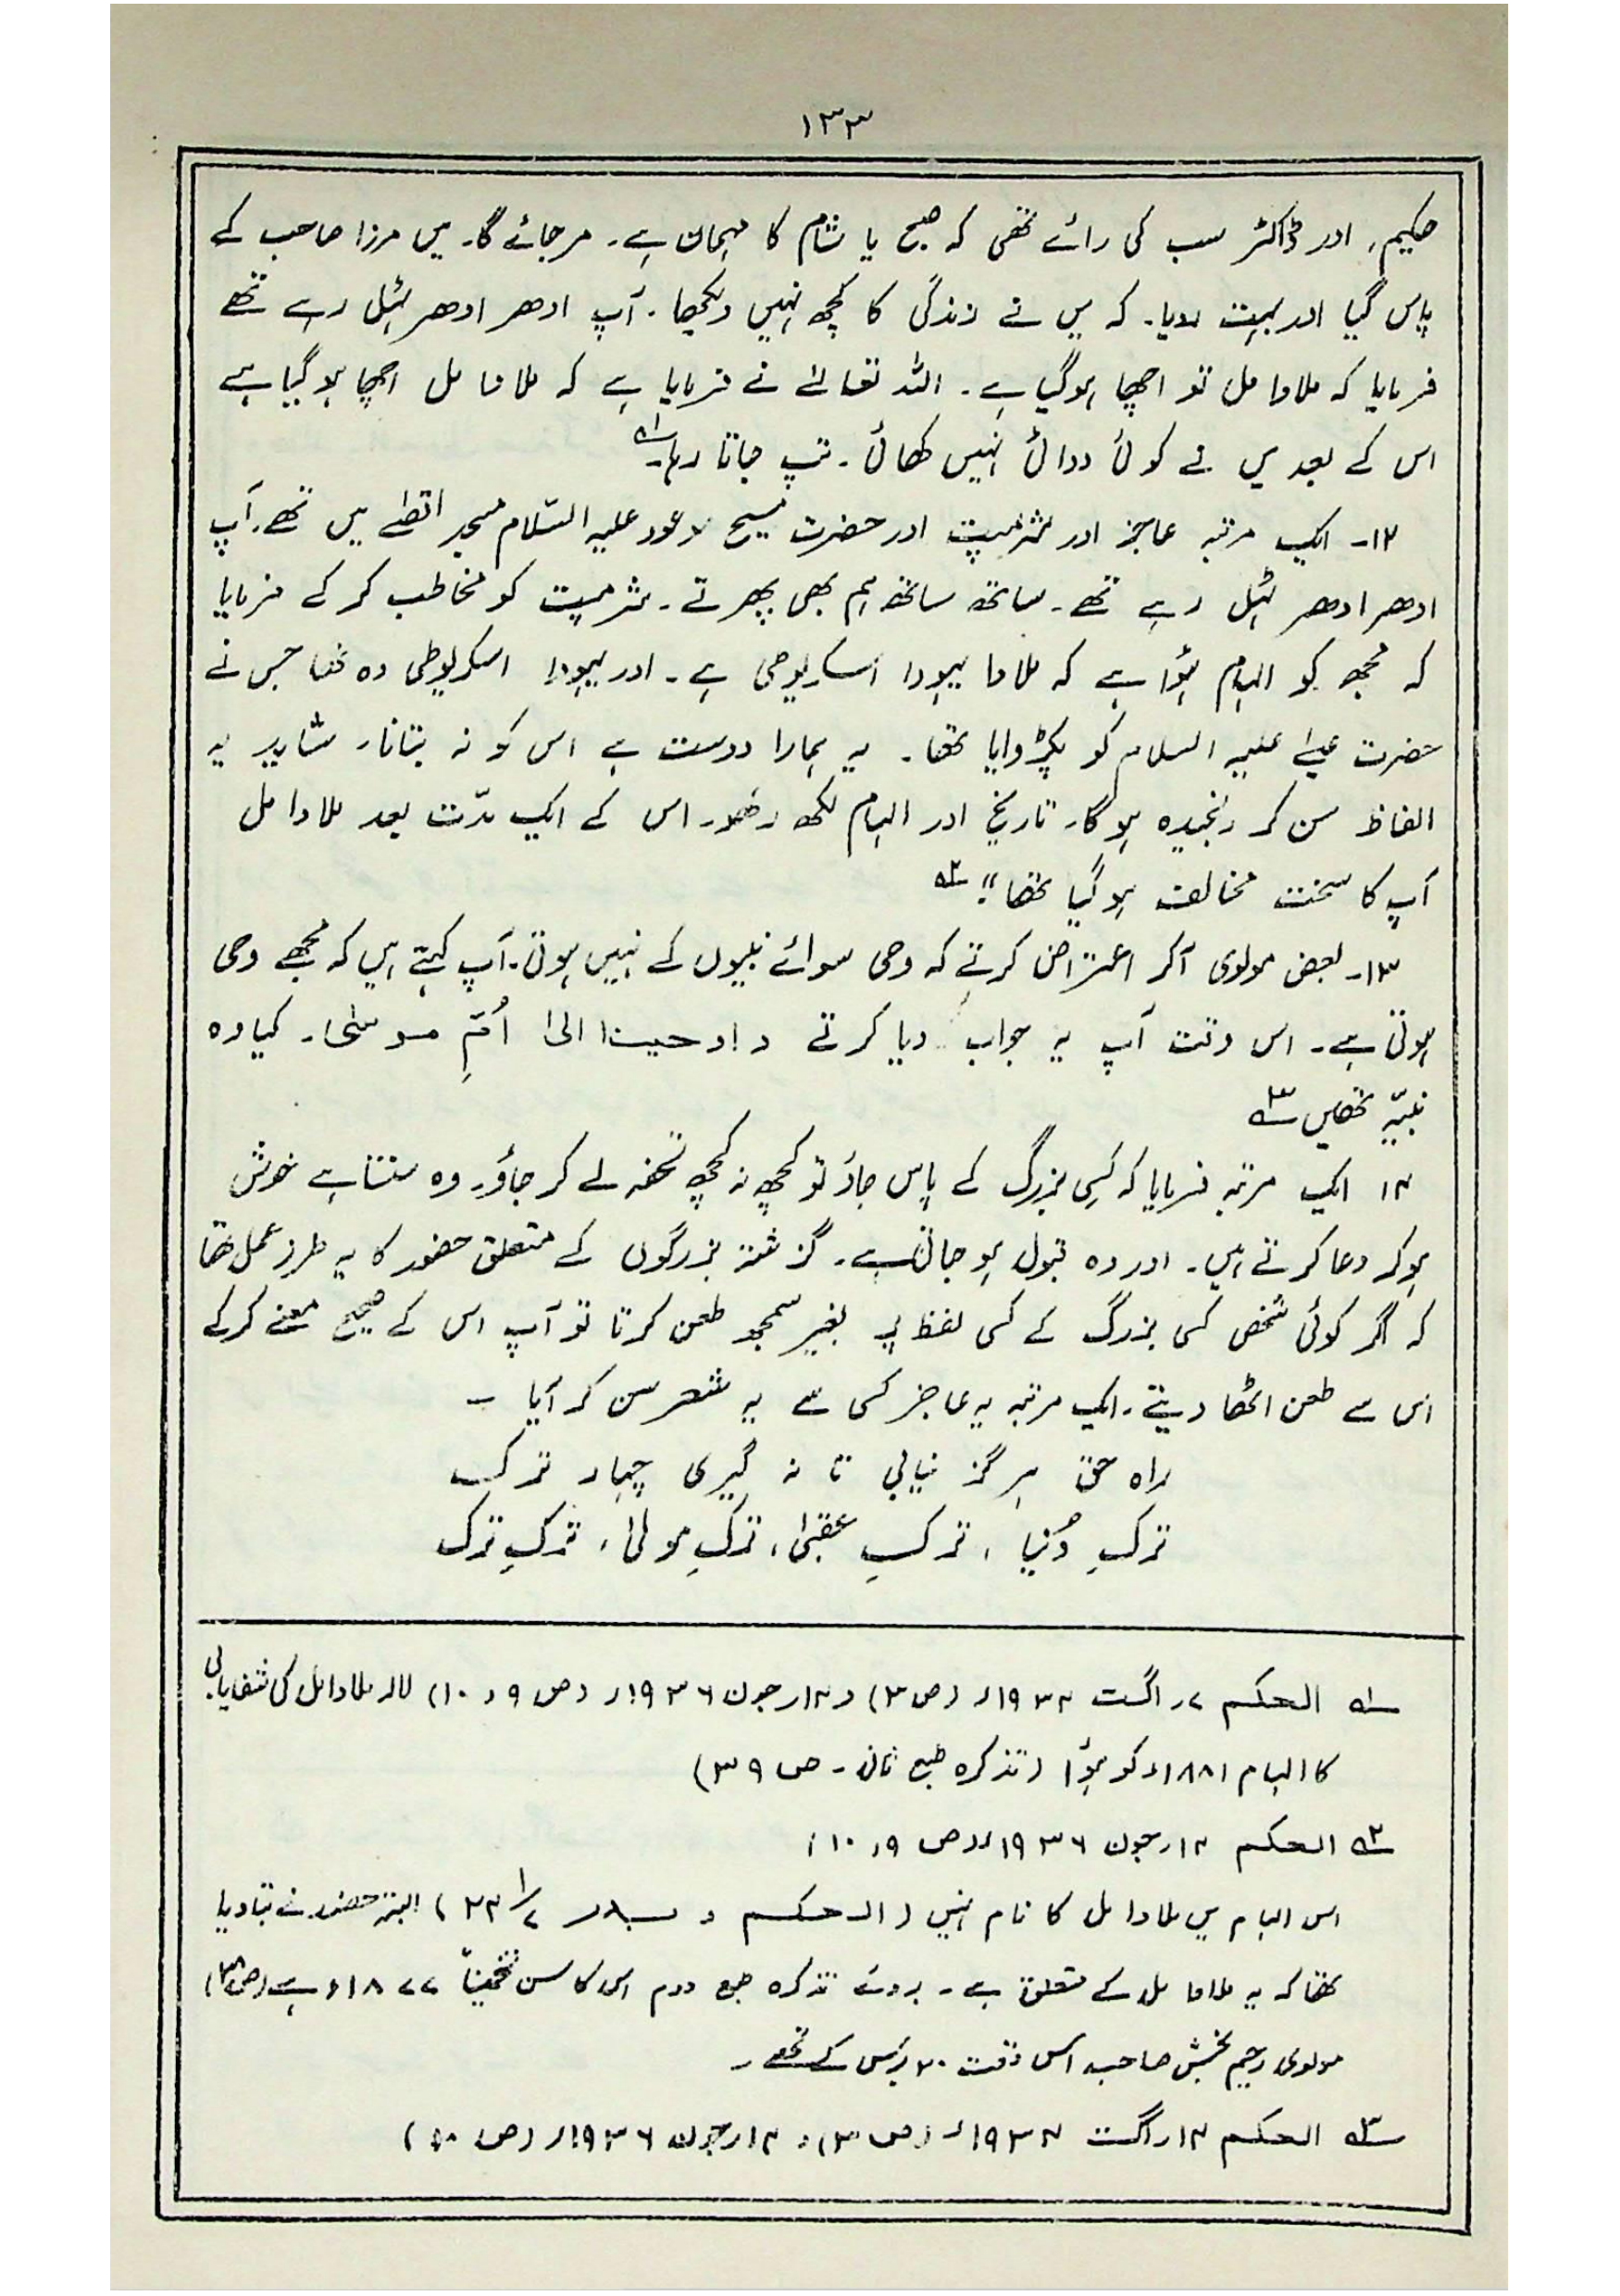 ۱۳۳
حکیم، اور ڈاکٹر سب کی رائے تھی کہ صبح یا شام کا مہمان ہے۔ مر جائے گا۔ میں مرزا صاحب کے
پاس گیا اور بہت رویا۔ کہ میں نے زندگی کا کچھ نہیں دیکھا۔ آپ ادھر ادھر ٹہل رہے تھے
فرمایا کہ ملاوامل تو اچھا ہوگیا ہے۔ اللہ تعالےٰ نے فرمایا ہے کہ ملاوامل اچھا ہوگیا ہے
اس کے بعد میں نے کوئی دوائی نہیں کھائی۔ تپ جاتا رہا۔ ؎۱
۱۲۔ ایک مرتبہ عاجز اور شرمپت اور حضرت مسیح موعود علیہ السّلام مسجد اقصٰے میں تھے۔ آپ
ادھر ادھر ٹہل رہے تھے۔ ساتھ ساتھ ہم بھی پھرتے۔ شرمپت کو مخاطب کر کے فرمایا
کہ مجھ کو الہام ہؤا ہے کہ ملاوا یہودا اسکریوطی ہے۔ اور یہودا اسکریوطی وہ تھا جس نے
حضرت عیسٰے علیہ السلام کو پکڑوایا تھا۔ یہ ہمارا دوست ہے اس کو نہ بتانا۔ شاید یہ
الفاظ سن کر رنجیدہ ہوگا۔ تاریخ اور الہام لکھ رکھو۔ اس کے ایک مدّت بعد ملاوامل
آپ کا سخت مخالف ہوگیا تھا"۔ ؎۲
۱۳۔ بعض مولوی آکر اعتراض کرتے کہ وحی سوائے نبیوں کے نہیں ہوتی۔ آپ کہتے ہیں کہ مجھے وحی
ہوتی ہے۔ اس وقت آپ یہ جواب دیا کرتے و اوحینا الیٰ اُمِّ موسٰی۔ کیا وہ
نبیّہ تھیں ؎۳
۱۴ ایک مرتبہ فرمایا کہ کسی بزرگ کے پاس جاؤ تو کچھ نہ کچھ تحفہ لے کر جاؤ۔ وہ سنتا ہے خوش
ہوکر دعا کرتے ہیں۔ اور وہ قبول ہو جاتی ہے۔ گزشتہ بزرگوں کے متعلق حضور کا یہ طرز عمل تھا
کہ اگر کوئی شخص کسی بزرگ کے کسی لفظ پر بغیر سمجھ طعن کرتا تو آپ اس کے صحیح معنے کرکے
اس سے طعن اٹھا دیتے۔ ایک مرتبہ یہ عاجز کسی سے یہ شعر سن کر آیا ۔
راہ حق ہرگز نیابی تا نہ گیری چہار ترک
ترکِ دُنیا ، ترکِ عقبٰی ، ترکِ مولیٰ ، ترکِ ترک
؎۱ الحکم ۷ر اگست ۱۹۳۴ء (ص ۳) و ۱۴ر جون ۱۹۳۶ء (ص ۹، ۱۰) لالہ ملاوامل کی شفایابی
کا الہام ۱۸۸۱ء کو ہؤا (تذکرہ طبع ثانی۔ ص ۳۹)
؎۲ الحکم ۱۴ر جون ۱۹۳۶ء (ص ۹، ۱۰)
اس الہام میں ملاوامل کا نام نہیں (الحکم و بدر) البتہ حضور نے بتا دیا
تھا کہ یہ ملاوامل کے متعلق ہے۔ بروئے تذکرہ طبع دوم اس کا سن تخمیناً ۱۸۷۷ء ہے (ص)
مولوی رحیم بخش صاحب اس وقت ۲۰ برس کے تھے۔
؎۳ الحکم ۱۴ر اگست ۱۹۳۴ء (ص ۳)، ۱۴ر جون ۱۹۳۶ء (ص ۱۰)